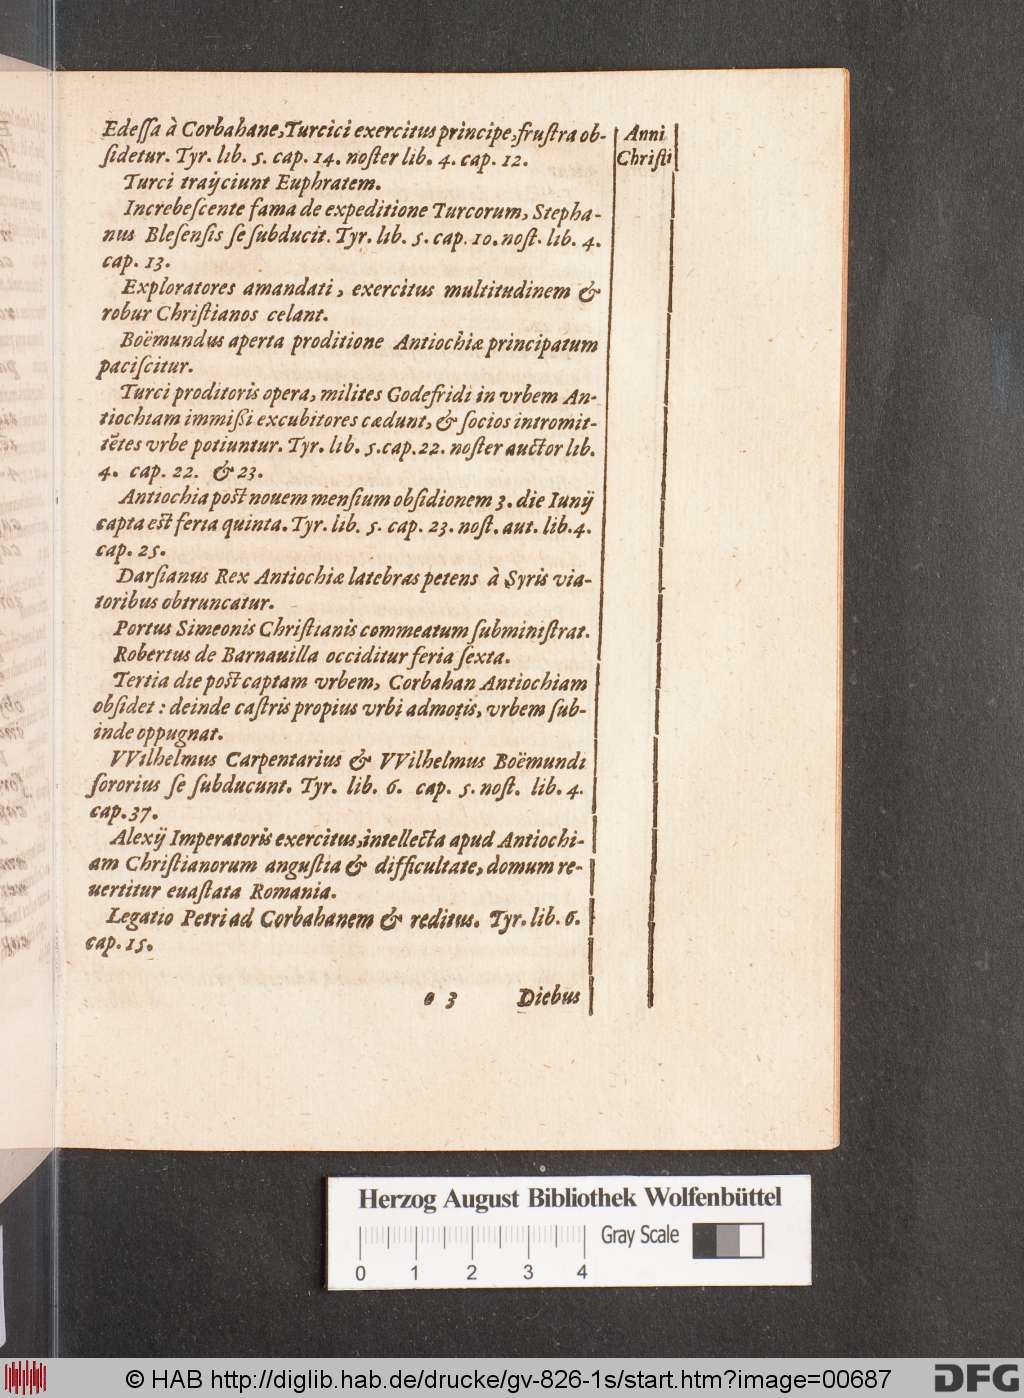 Edeſſa à Corbahane, Turcici exercitus principe, fruſtra ob-
ſidetur. Tyr. lib. 5. cap. 14. noſter lib. 4. cap. 12.
Turci traijciunt Euphratem.
Increbeſcente fama de expeditione Turcorum, Stepha-
nus Bleſenſis ſe ſubducit. Tyr. lib. 5. cap. 10. noſt. lib. 4.
cap. 13.
Exploratores amandati, exercitus multitudinem &
robur Chriſtianos celant.
Boëmundus aperta proditione Antiochiæ principatum
paciſcitur.
Turci proditoris opera, milites Godefridi in vrbem An-
tiochiam immiſsi excubitores cædunt, & ſocios intromit-
tẽtes vrbe potiuntur. Tyr. lib. 5. cap. 22. noſter auctor lib.
4. cap. 22. & 23.
Antiochia poſt nouem menſium obſidionem 3. die Iunij
capta eſt feria quinta. Tyr. lib. 5. cap. 23. noſt. aut. lib. 4.
cap. 25.
Darſianus Rex Antiochiæ latebras petens à Syris via-
toribus obtruncatur.
Portus Simeonis Chriſtianis commeatum ſubminiſtrat.
Robertus de Barnauilla occiditur feria ſexta.
Tertia die poſt captam vrbem, Corbahan Antiochiam
obſidet : deinde caſtris propius vrbi admotis, vrbem ſub-
inde oppugnat.
VVilhelmus Carpentarius & VVilhelmus Boëmundi
ſororius ſe ſubducunt. Tyr. lib. 6. cap. 5. noſt. lib. 4.
cap. 37.
Alexij Imperatoris exercitus, intellecta apud Antiochi-
am Chriſtianorum anguſtia & difficultate, domum re-
uertitur euaſtata Romania.
Legatio Petri ad Corbahanem & reditus. Tyr. lib. 6.
cap. 15.
e 3 Diebus
Anni
Chriſti
Herzog August Bibliothek Wolfenbüttel
Gray Scale
0 1 2 3 4
© HAB http://diglib.hab.de/drucke/gv-826-1s/start.htm?image=00687
DFG